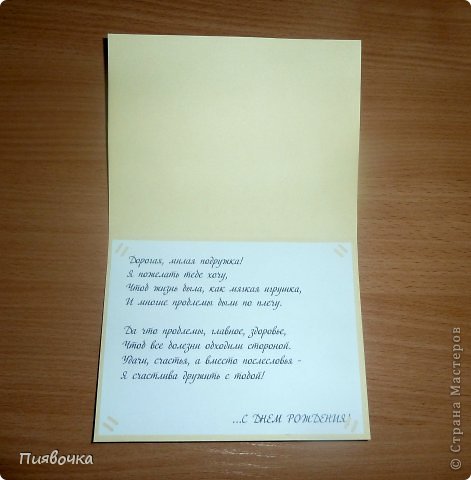 Дорогая, милая подружка!
Я пожелать тебе хочу,
Чтоб жизнь была, как мягкая игрушка,
И многие проблемы были по плечу.

Да что проблемы, главное, здоровье,
Чтоб все болезни обходили стороной.
Удачи, счастья, а вместо послесловья -
Я счастлива дружить с тобой!

...С ДНЕМ РОЖДЕНИЯ!
Пиявочка
© Страна Мастеров